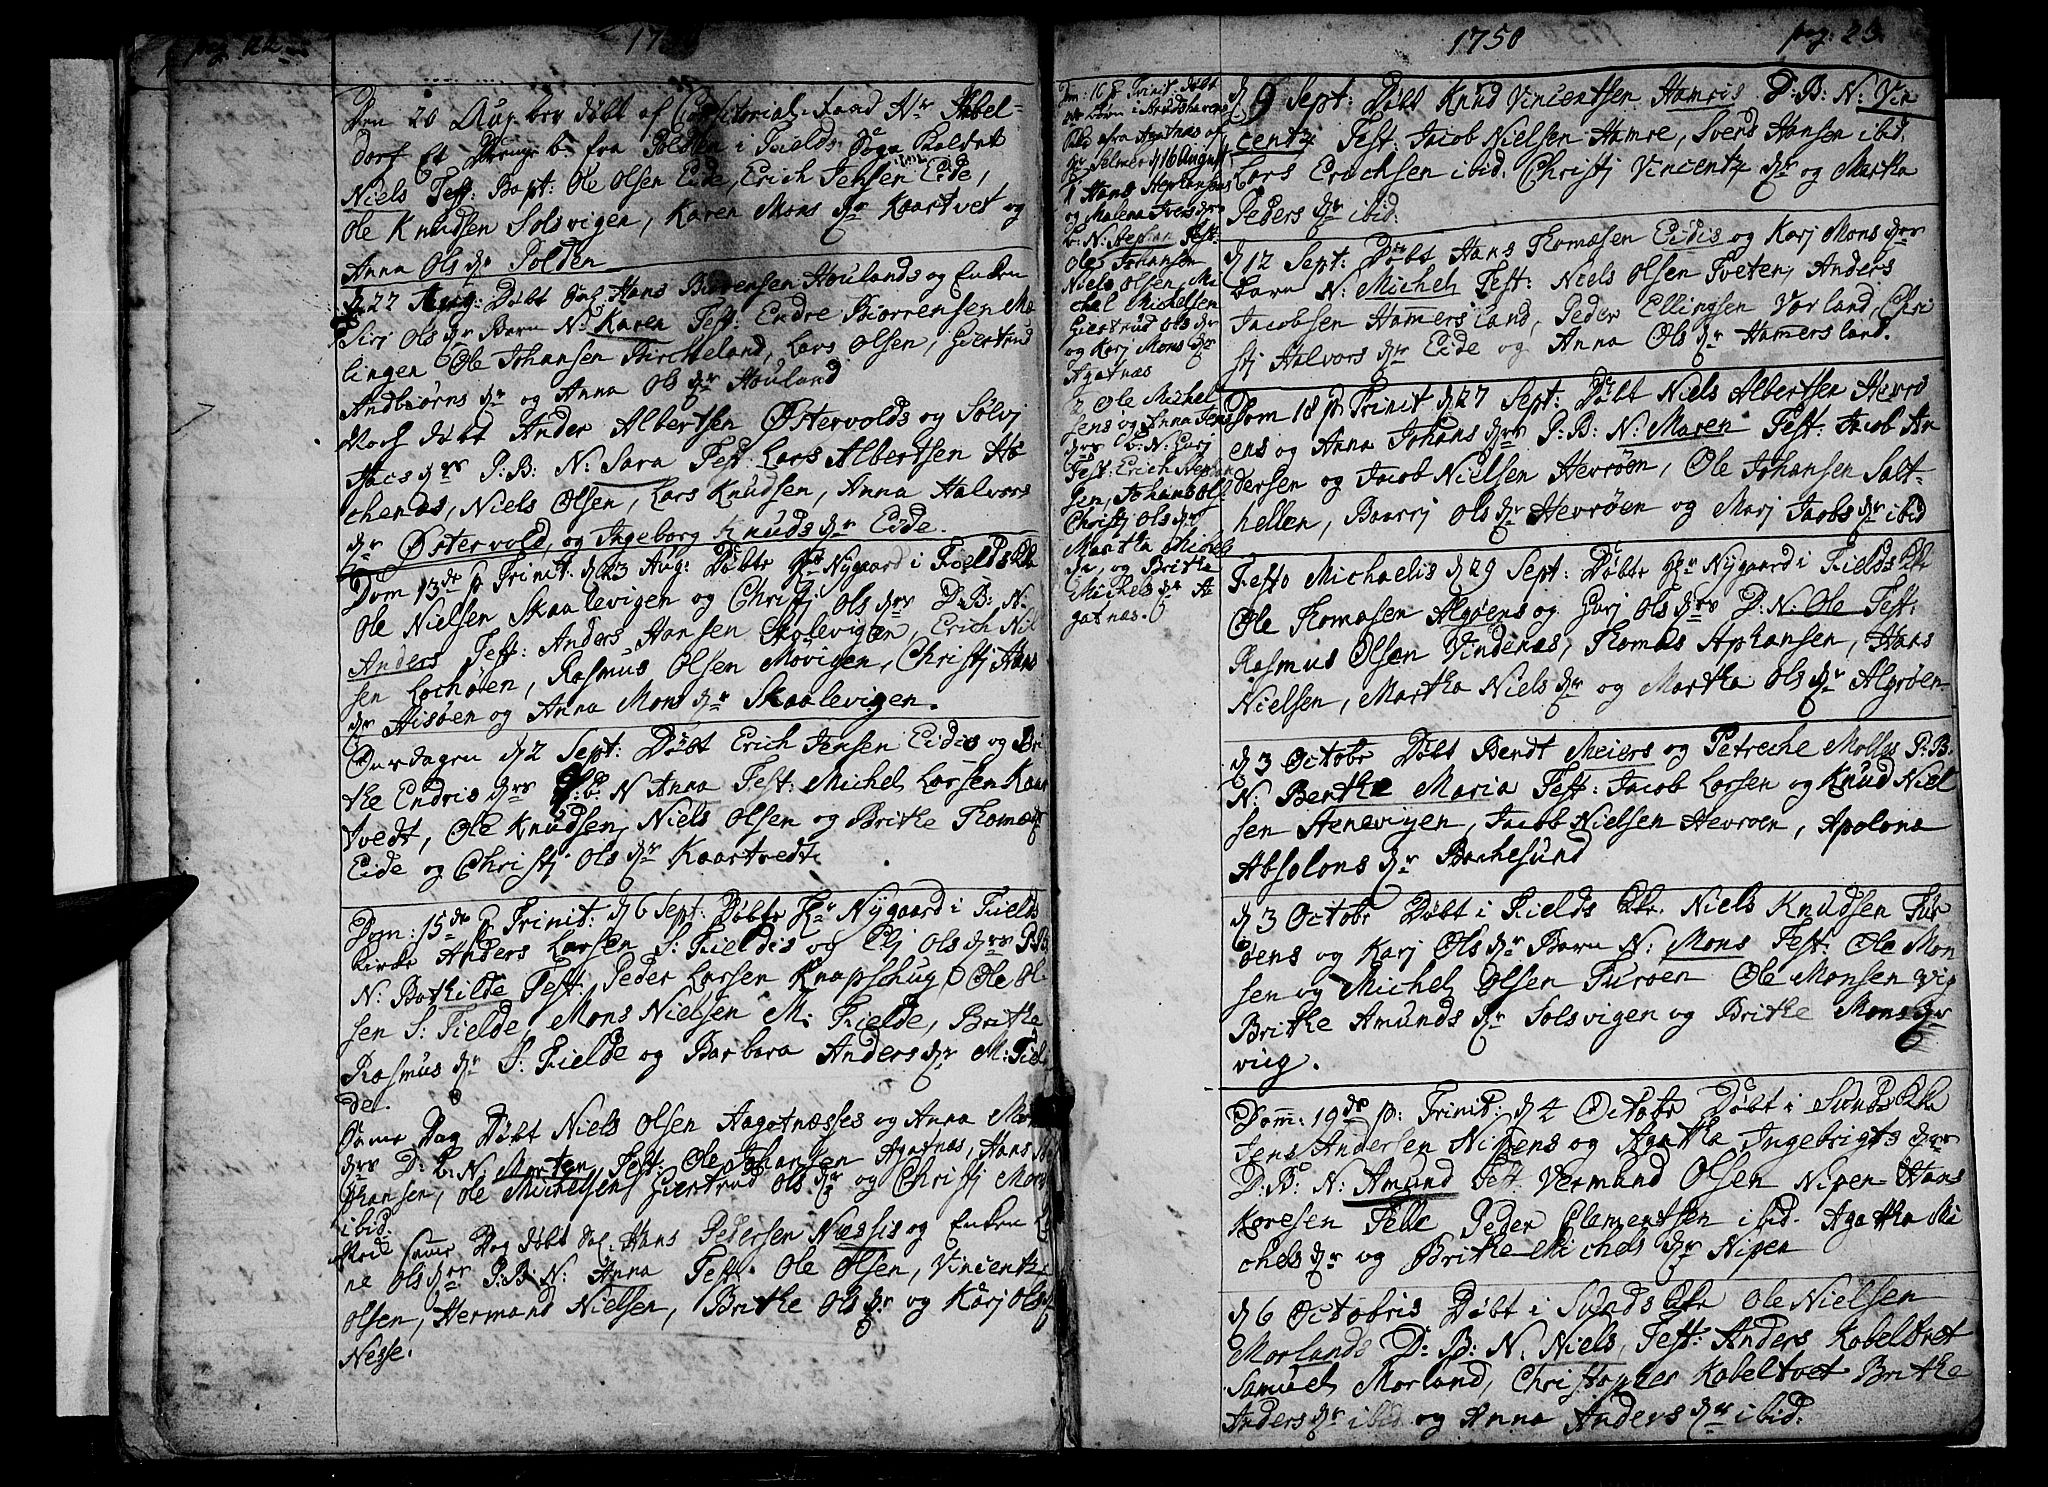 pag. 22
17
Den 20 Aug blev døbt af Consistorial-Raad Hr Stabel-
dorf et Drenge b. fra Tolden i Fields Sogn kaldet
Niels Test: Bapt: Ole Olsen Eide, Erich Jensen Eide,
Ole Knudsen Solsvigen, Karen Mons dr Kaartvet og
Anna Ols dr Tolden
d 22 Aug: Døbt Sal Hans Houlands og Enken
Siri Ols dr Barn N. Karen Test: Endre
lingen Ole Johansen Bircheland, Lars Olsen, Giertrud
Andbiørns dr og Anna Ols dr Houland
Noch døbt Ander Albertsen Østervolds og Sølvj
Jacs drs P: B: N: Sara Test: Lars Albertsen
chenæs, Niels Olsen, Lars Knudsen, Anna Halvors
dr Østervold, og Ingeborg Knuds dr Eide.
Dom 13de p Trinit. d 23 Aug: Døbte Hr Nygaard i Fields Kke
Ole Nielsen Skaalevigen og Christj Ols drs D: B: N:
Anders Test: Anders Hansen Skolevigen Erich Niel
sen Lochøen, Rasmus Olsen Møvigen, Christj Hans
dr Hisøen og Anna Mons dr Skaalevigen.
Onsdagen d 2 Sept: Døbt Erich Jensen Eides og Bri
the Endris drs P: b: N Anna Test: Michel Larsen Kaar
tvedt, Ole Knudsen, Niels Olsen og Brithe Thomæ dr
Eide og Christj Ols dr Kaartvedt.
Dom: 15de p Trinit: d 6 Sept: Døbte Hr Nygaard i Fields
Kirke Anders Larsen S: Fieldes og Elj Ols drs P: B
N: Bothilde Test: Peder Larsen Knapschug, Ole Ol
sen S: Fielde, Mons Nielsen M: Fielde, Brithe
Rasmus dr S: Fielde og Barbara Anders dr M: Fiel
de.
Same Dag Døbt Niels Olsen Aagotnæsses og Anna Mor
drs D: b: N: Morten, Test: Ole Johansen Agatnæs, Hans
phansen, Ole Michelsen, Giertrud Ols dr og Christj Mort
ibid.
Nock same Dag døbt Sal. Hans Pedersen Nessis og Enken
ne Ols drs P: B: N: Anna Test: Ole Olsen, Vincentz
Olsen, Hermand Nielsen, Brithe Ols dr og Karj Ols dr
Nesse.
1750
pag: 23
Dm: 16 p Trinit. døbt
Børn i
fra Agatnæs af
Hr Selmer d 16 August
1 Hans Stephansens
og Malena Ivers drs
b: N: Stephan Test:
Ole Johansen
Niels Olsen, Mi
chel Michelsen
Giertrud Ols dr
og Karj Mons dr
Agatnæs
2 Ole Michel
sens og Anna Jens
drs b: N: Gurj
Test: Erich Stephan
sen, Johans Ols
Christj Ols dr
Martha Michels
dr, og Brithe
Michels dr A
gatnæs.
d 9 Sept: Døbt Knud Vincentsen Hamris D: B: N: Vin
centz Test: Jacob Nielsen Hamre, Svend Hansen ibid.
Lars Erichsen ibid. Christj Vincentz dr og Martha
Peders dr ibid.
d 12 Sept: Døbt Hans Thomæsen Eidis og Karj Mons drs
Barn N: Michel Test: Niels Olsen Tveten, Anders
Jacobsen Hamersland, Peder Ellingsen Vorland, Chri
stj Halvors dr Eide og Anna Ols dr Hamersland.
Dom 18 p Trinit d 27 Sept: Døbt Niels Albertsen Hevrø
ens og Anna Johans drs P: B: N: Maren Test: Jacob An
dersen og Jacob Nielsen Hevrøen, Ole Johansen Salt-
hellen, Baarrj Ols dr Hevrøen og Marj Jacobs dr ibid
Festo Michaelis d 29 Sept: Døbte Hr Nygaard i Fields Kke
Ole Thomasen Algrøens og Gurj Ols drs D: N: Ole Test:
Rasmus Olsen Vindenæs, Thomas Aphansen, Hans
Nielsen, Martha Niels dr og Martha Ols dr Algrøen
d 3 Octobr Døbt Berdt Meiers og Petreche Molles P: B.
N. Berthe Maria Test: Jacob Larsen og Knud Niel
sen Stenevigen, Jacob Nielsen Hevroen, Apolona
Absolons dr Bachesund
d 3 Octobr Døbt i Fields Kke. Niels Knudsen Tur
øens og Karj Ols dr Barn N: Mons Test: Ole Mon
sen og Michel Olsen Turøen Ole Monsen Vig
Brithe Amunds dr Solsvigen og Brithe Mons dr
viig.
Dom: 19de p: Trinit: d 4 Octobr Døbt i Sunds Kke
Jens Andersen Nipens og Agatha Ingebrigts drs
D: B: N: Amund Test. Vermund Olsen Nipen Hans
Koresen Telle Peder Clementsen ibid. Agatha Mi
chels dr og Brithe Michels dr Nipen
d 6 Octobris Døbt i Sunds Kke Ole Nielsen
Morlands D: B: N. Niels, Test: Anders Kobeltvet
Samuel Morland, Christopher Kobeltvet Brithe
Anders dr ibid og Anna Anders dr ibid.